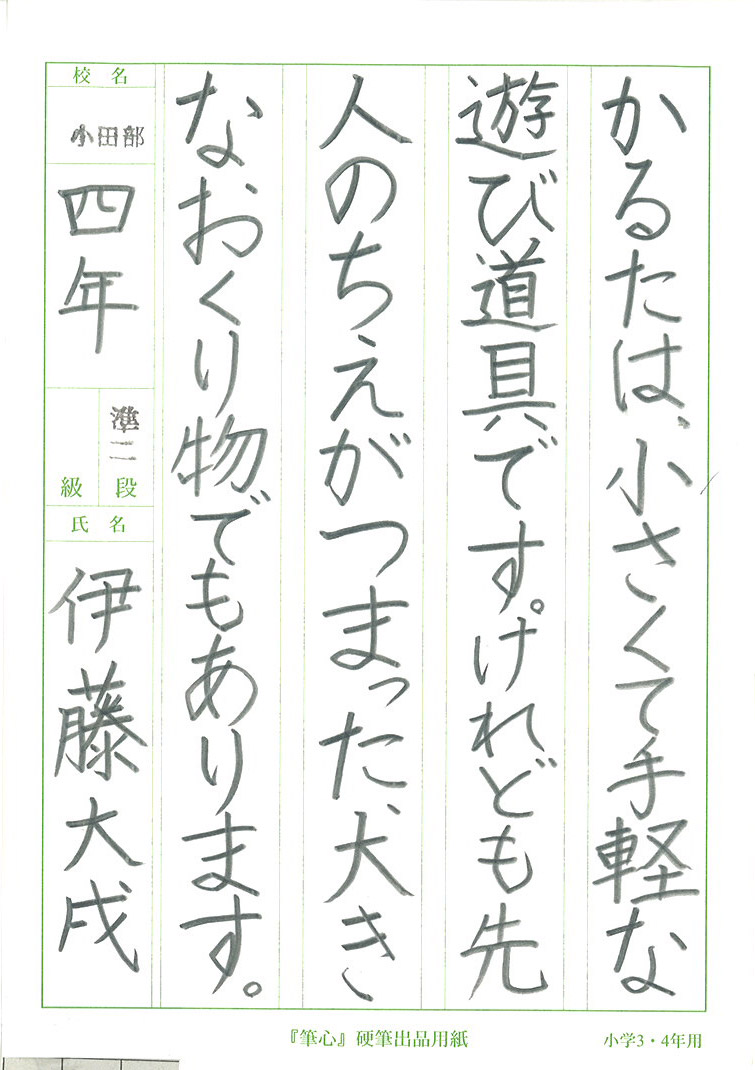 かるたは、小さくて手軽な
遊び道具です。けれども先
人のちえがつまった、大き
なおくり物でもあります。
校名
小田部
四年
準二
段
級
氏名
伊藤大戌
『筆心』硬筆出品用紙
小学3・4年用